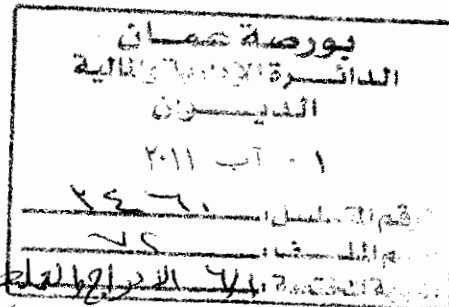 بورصة عمان
الدائرة الإدارية والمالية
الديوان
٠١ آب ٢٠١١
الرقم المتسلسل:
رقم الملف:
الجهة المختصة: الادراج والتداول